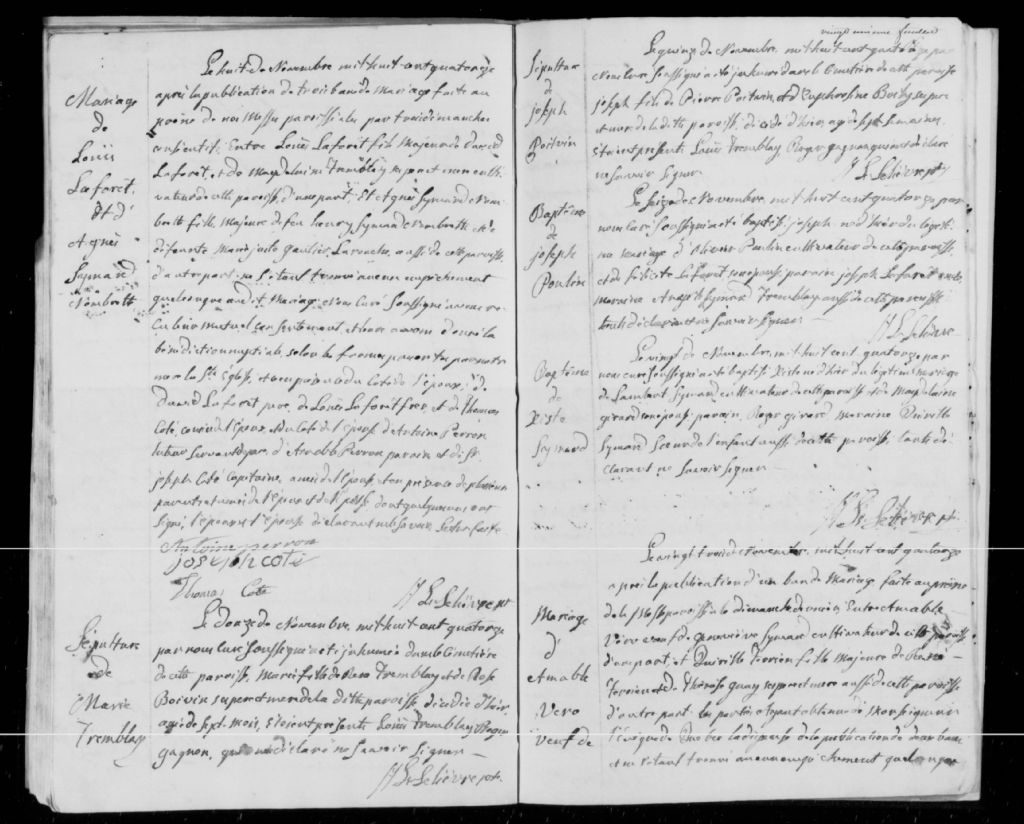 Mariage
de
Louis
Laforet
et d'
Agnès
Symard
Nombrette
Le huit de Novembre mil huit cent quatorze
après la publication de trois bans de Mariage faite au
prône de nos Messes paroissiales par trois dimanches
consécutifs, Entre Louis Laforet fils Majeur de David
Laforet, et de Magdelaine Tremblay ses pere et mere culti-
vateur de cette paroisse, d'une part; Et Agnès Symard Nom-
brette fille Majeure de feu henry Symard Nombrette et de
défunte Marie Gaultier Larouche, aussi de cette paroisse
d'autre part; ne s'étant trouvé aucun empêchement
quelconque au dit Mariage Nous Curé Soussigné avons re-
çu leur mutuel consentement, et leur avons donné la
bénédiction nuptiale, selon la forme prescrite par notre
mere la Ste Eglise, et en présence du coté de l'époux de
David Laforet pere, de Louis Laforet frere, et de Thomas
Coté, cousin de l'époux, du coté de l'épouse de Antoine Perron
parain et de Sr.
joseph Coté Capitaine, ami de l'épouse, en présence de plusieurs
parents et amis de l'époux et de l'épouse dont quelques uns ont
signé, l'époux et l'épouse déclarant ne le savoir. Lecture faite
Antoine perron
joseph coté
Thomas Coté
Lelièvre ptre
Sépulture
de
Marie
Tremblay
Le douze de Novembre mil huit cent quatorze
par nous curé soussigné a été inhumé dans le Cimetière
de cette paroisse, Marie fille de Tremblay et de Rose
Boivin ses pere et mere de la ditte paroisse, décédée d'hier
agée de Sept Mois, étoient présents Louis Tremblay, Roger
gagnon, qui ont déclaré ne savoir signer
Lelièvre ptre
vingt unieme feuillet
Sépulture
de
joseph
Poitvin
Le quinze de Novembre mil huit cent quatorze par
Nous curé Soussigné a été inhumé dans le Cimetière de cette paroisse
joseph fils de Pierre Poitvin, et d'Euphrosine Boily ses pere
et mere de la ditte paroisse, décédé d'hier, agé de sept semaines
étoient présents Louis Tremblay, Roger gagnon qui ont déclaré
ne savoir signer
Lelièvre ptre
Baptême
de
joseph
Poulin
Le seize de Novembre mil huit cent quatorze par
nous curé Soussigné a été baptisé joseph né d'hier du légiti-
me mariage d'Olivier Poulin cultivateur de cette paroisse
et de félicité Laforet son épouse parain joseph Laforet
Maraine Symard Tremblay aussi de cette paroisse
tous déclarant ne savoir signer
Lelièvre
Baptême
de
Xiste
Seymard
Le vingt de Novembre, mil huit cent quatorze par
nous curé soussigné a été baptisé Xiste né d'hier du légitime mariage
de Lambert Symard cultivateur de cette paroisse et de Magdelaine
girard son épouse parain, Roger girard Maraine
Symard Soeur de l'enfant aussi de cette paroisse, tous dé-
clarant ne savoir signer
Lelièvre ptre
Mariage
d'
etmable
Vero
veuf de
Le vingt trois de Novembre, mil huit cent quatorze
après la publication d'un ban de Mariage faite au prône
de la Messe paroissiale dimanche dernier, Entre etmable
Vero veuf de geneviève Symard cultivateur de cette paroisse
d'une part; et Terrien fille Majeure de
Terrien et de Thérèse quay ses pere et mere aussi de cette paroisse
d'autre part; les parties ayant obtenu de Monseigneur
l'évêque de Quebec la dispense de la publication de deux bans
et ne s'étant trouvé aucun empêchement quelconque